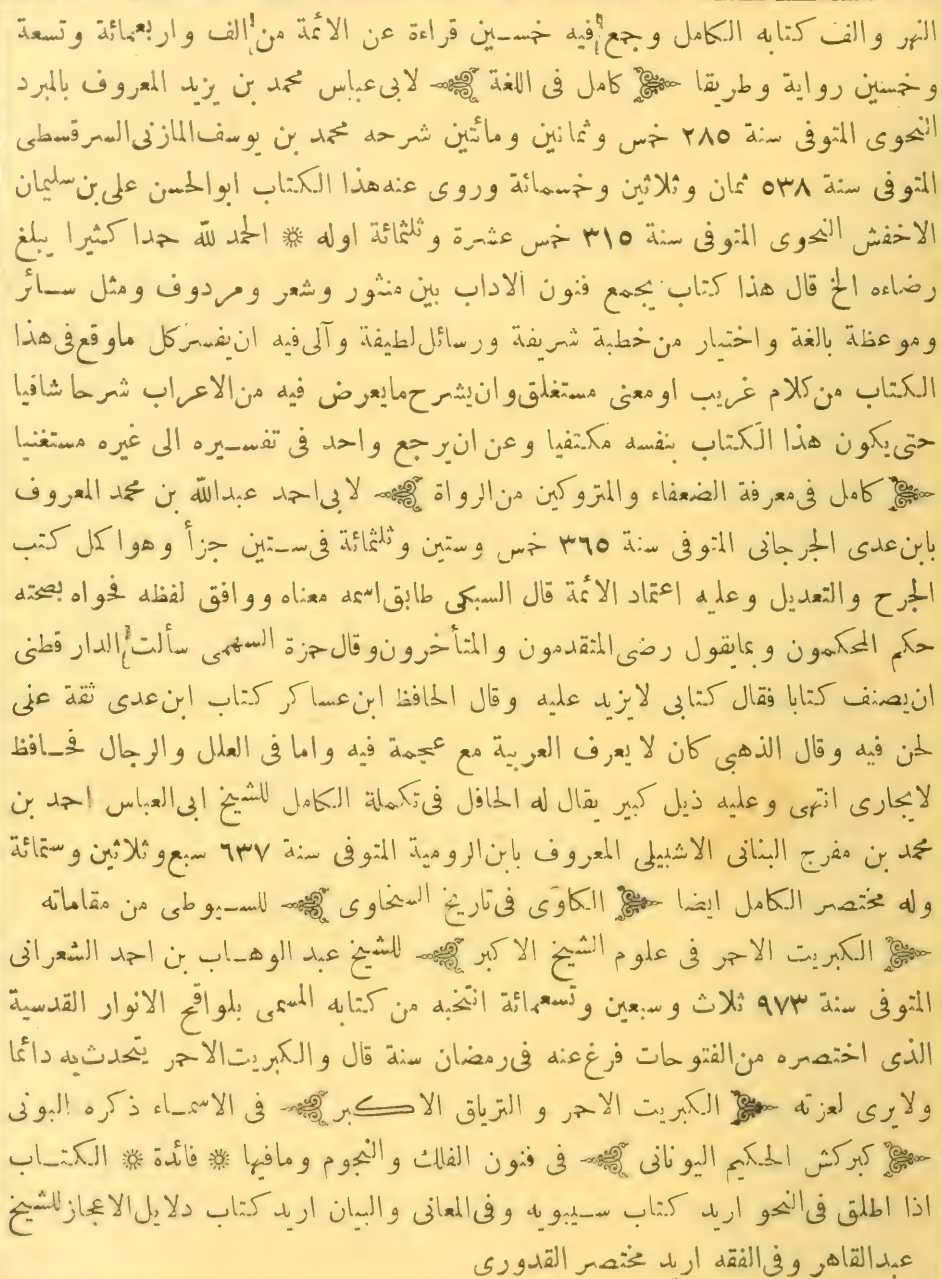 النهر والف كتابه الكامل وجمع فيه خمسين قراءة عن الائمة من الف واربعمائة وتسعة
وخمسين رواية وطريقا ﴿ كامل فى اللغة ﴾ لابى عباس محمد بن يزيد المعروف بالمبرد
النحوى المتوفى سنة ٢٨٥ خمس وثمانين ومائتين شرحه محمد بن يوسف المازنى السرقسطى
المتوفى سنة ٥٣٨ ثمان وثلاثين وخمسمائة وروى عنه هذا الكتاب ابوالحسن على بن سليمان
الاخفش النحوى المتوفى سنة ٣١٥ خمس عشرة وثلثمائة اوله ※ الحمد لله حمدا كثيرا يبلغ
رضاءه الخ قال هذا كتاب يجمع فنون الاداب بين منثور وشعر ومردوف ومثل سائر
وموعظة بالغة واختيار من خطبة شريفة ورسائل لطيفة وآلى فيه ان يفسر كل ماوقع فى هذا
الكتاب من كلام غريب او معنى مستغلق وان يشرح مايعرض فيه من الاعراب شرحا شافيا
حتى يكون هذا الكتاب بنفسه مكتفيا وعن ان يرجع واحد فى تفسيره الى غيره مستغنيا
﴿ كامل فى معرفة الضعفاء والمتروكين من الرواة ﴾ لابى احمد عبدالله بن محمد المعروف
بابن عدى الجرجانى المتوفى سنة ٣٦٥ خمس وستين وثلثمائة فى ستين جزأ وهو اكمل كتب
الجرح والتعديل وعليه اعتماد الائمة قال السبكى طابق اسمه معناه ووافق لفظه فحواه بصحته
حكم المحكمون وبمايقول رضى المتقدمون والمتأخرون وقال حمزة السهمى سألت الدار قطنى
ان يصنف كتابا فقال كتابى لايزيد عليه وقال الحافظ ابن عساكر كتاب ابن عدى ثقة على
لحن فيه وقال الذهبى كان لا يعرف العربية مع عجمة فيه واما فى العلل والرجال فحافظ
لايجارى انتهى وعليه ذيل كبير يقال له الحافل فى تكملة الكامل للشيخ ابى العباس احمد بن
محمد بن مفرج البنانى الاشبيلى المعروف بابن الرومية المتوفى سنة ٦٣٧ سبع وثلاثين وستمائة
وله مختصر الكامل ايضا ﴿ الكاوى فى تاريخ السخاوى ﴾ للسيوطى من مقاماته
﴿ الكبريت الاحمر فى علوم الشيخ الاكبر ﴾ للشيخ عبد الوهاب بن احمد الشعرانى
المتوفى سنة ٩٧٣ ثلاث وسبعين وتسعمائة انتخبه من كتابه المسمى بلواقح الانوار القدسية
الذى اختصره من الفتوحات فرغ عنه فى رمضان سنة قال والكبريت الاحمر يتحدث به دائما
ولايرى لعزته ﴿ الكبريت الاحمر و الترياق الاكبر ﴾ فى الاسماء ذكره البونى
﴿ كبركش الحكيم اليونانى ﴾ فى فنون الفلك والنجوم ومافيها ※ فائدة ※ الكتاب
اذا اطلق فى النحو اريد كتاب سيبويه وفى المعانى والبيان اريد كتاب دلايل الاعجاز للشيخ
عبدالقاهر وفى الفقه اريد مختصر القدورى